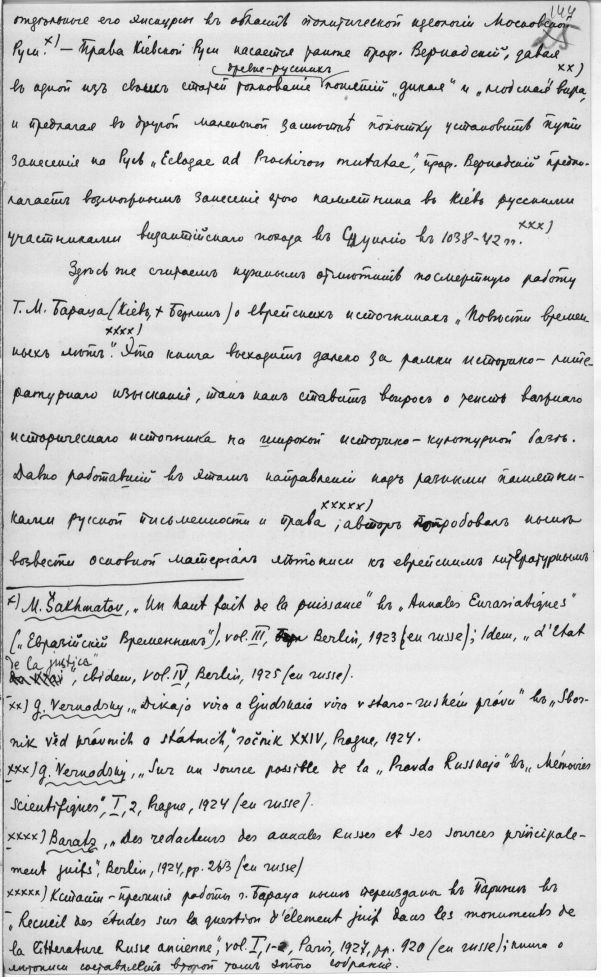 144
25
отдельные его экскурсы въ область политической идеологіи Московской
Руси.x) — Права Кіевской Руси касается также проф. Вернадскій, давая
древне-русскихъ xx)
въ одной изъ своихъ статей толкованіе понятій „дикая" и „людская" вира,
и предлагая въ другой маленькой замѣткѣ попытку установить пути
занесенія на Русь „Eclogae ad Prochiron mutatae", проф. Вернадскій предпо-
лагаетъ возможнымъ занесеніе этого памятника въ Кіевъ русскими
участниками византійскаго похода въ Сицилію въ 1038-42 гг. xxx)
Здѣсь же считаемъ нужнымъ отмѣтить посмертную работу
Г. М. Бараца (Кіевъ, + Берлинъ) о еврейскихъ источникахъ „Повѣсти времен
xxxx)
ныхъ лѣтъ". Эта книга выходитъ далеко за рамки историко-лите-
ратурнаго изысканія, такъ какъ ставитъ вопросъ о генезѣ важнаго
историческаго источника на широкой историко-культурной базѣ.
Давно работавшій въ этомъ направленіи надъ разными памятни-
ками русской письменности и права xxxxx), авторъ попробовалъ нынѣ
возвести основной матеріалъ лѣтописи къ еврейскимъ литературнымъ
x) M. Šakhmatov, „Un haut fait de la puissance" въ „Annales Eurasiatiques"
(„Евразійскій Временникъ"), vol. III, Berlin, 1923 (en russe); Idem, „L'Etat
de la justice", ibidem, vol. IV, Berlin, 1925 (en russe).
xx) G. Vernadsky, „Dikaja vira a ljudskaia vira v staro-ruském právu" въ „Sbor-
nik věd právních a státních", ročník XXIV, Prague, 1924.
xxx) G. Vernadsky, „Sur un source possible de la „Pravda Russkaja" въ „Mémoires
scientifiques", I, 2, Prague, 1924 (en russe).
xxxx) Baratz, „Des redacteurs des annales Russes et ses sources principale-
ment juifs", Berlin, 1924, pp. 263 (en russe)
xxxxx) Кстати-прежнія работы г. Бараца нынѣ переизданы въ Парижѣ въ
„Recueil des études sur la question d'élement juif dans les monuments de
la litterature Russe ancienne", vol. I, 1-2, Paris, 1927, pp. 920 (en russe); книга о
лѣтописи составляетъ второй томъ этого собранія.